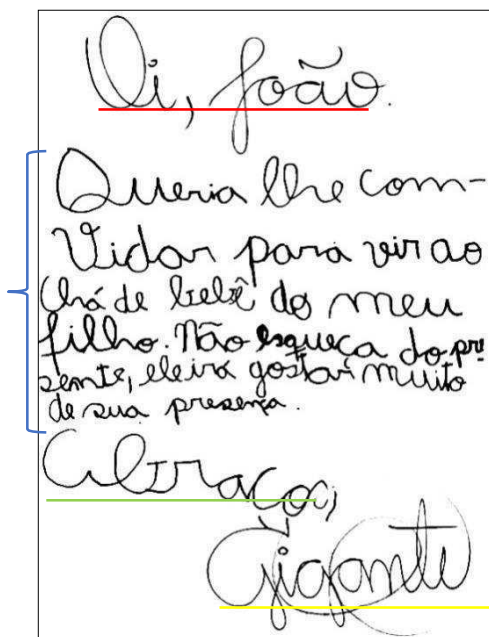 Oi, João.
Queria lhe com-
vidar para vir ao
chá de bebê do meu
filho. Não esqueça do pre-
sente, ele irá gostar muito
de sua presença.
Abraços,
Gigante